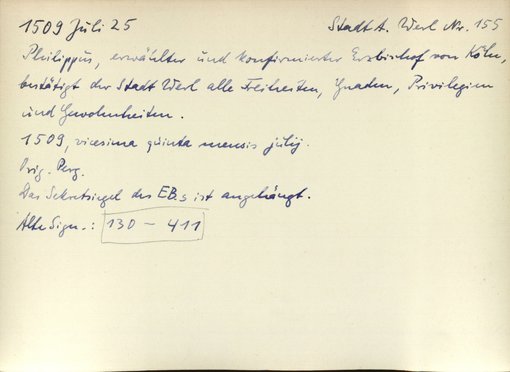 1509 Juli 25 Stadt A. Werl Nr. 155
Philippus, erwählter und konfirmierter Erzbischof von Köln,
bestätigt der Stadt Werl alle Freiheiten, Gnaden, Privilegien
und Gewohnheiten.
1509, vicesima quinta mensis julij.
Orig. Perg.
Das Sekretsiegel des EB.s ist angehängt.
Alte Sign.: 130 - 411